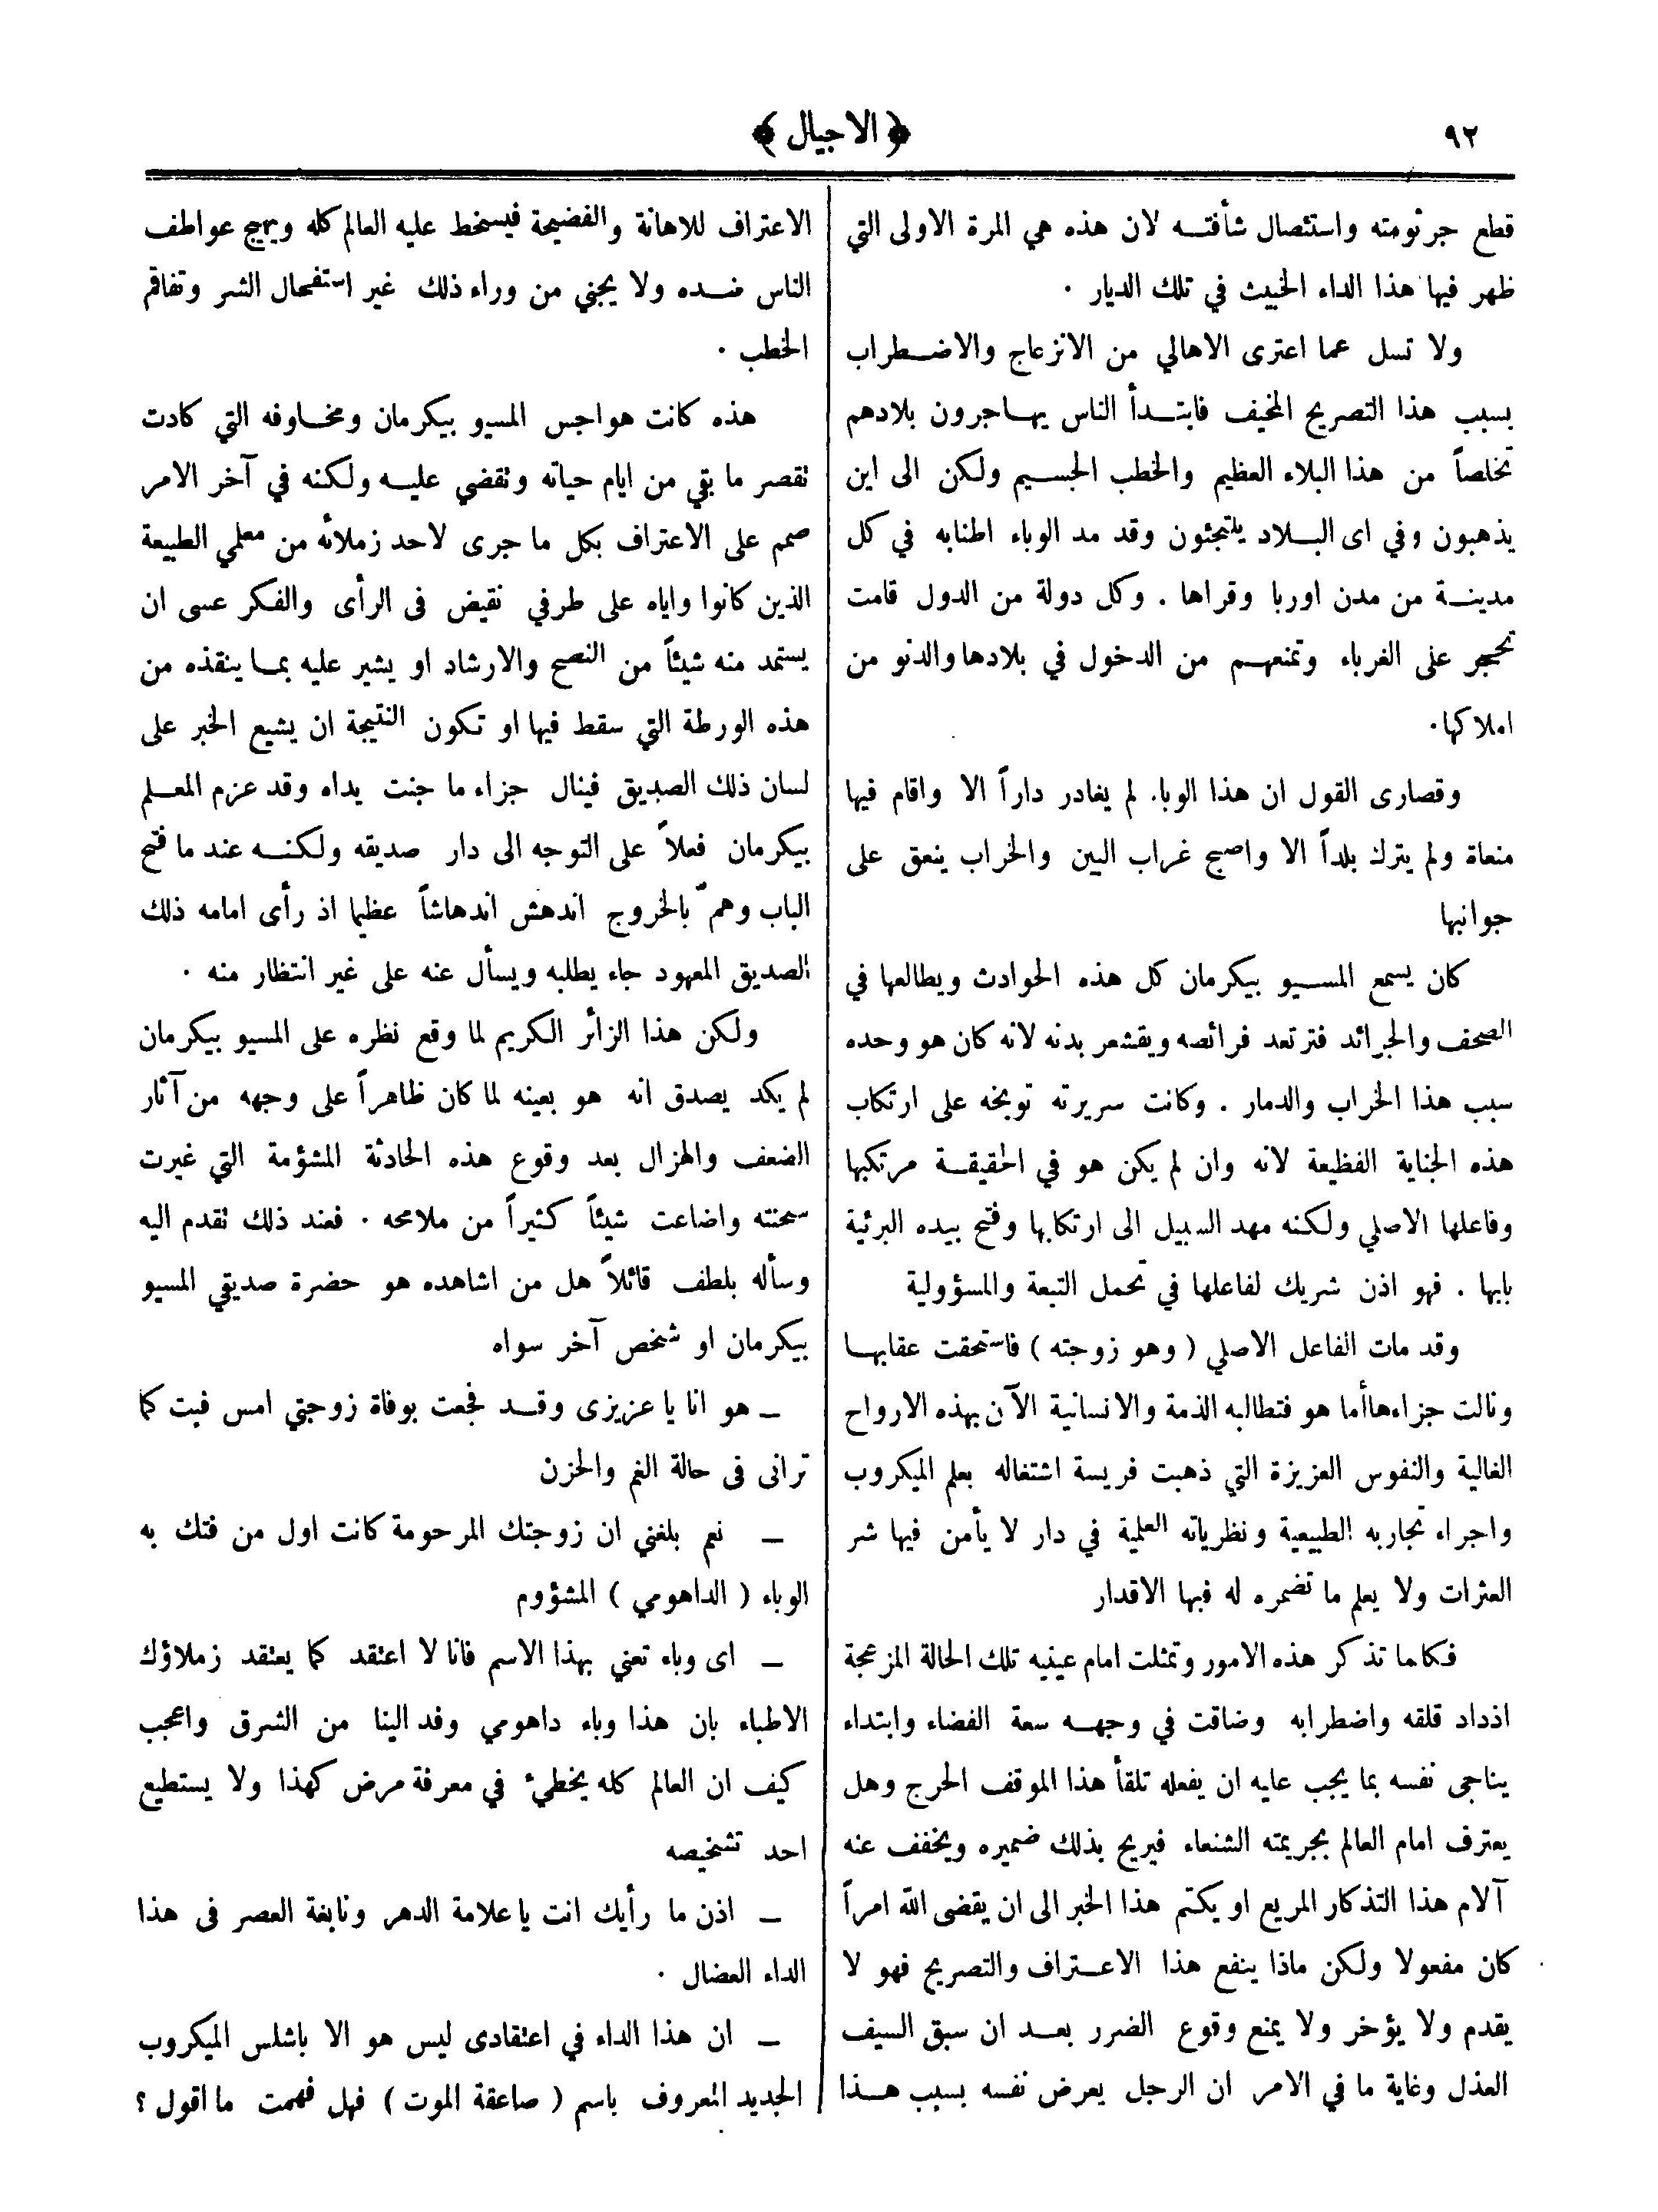 ٩٢
﴿ الاجيال ﴾
قطع جرثومته واستئصال شأفته لان هذه هي المرة الاولى التي
ظهر فيها هذا الداء الخبيث في تلك الديار .
ولا تسل عما اعترى الاهالي من الانزعاج والاضطراب
بسبب هذا التصريح المخيف فابتدأ الناس يهاجرون بلادهم
تخلصاً من هذا البلاء العظيم والخطب الجسيم ولكن الى اين
يذهبون وفي اى البلاد يلتجئون وقد مد الوباء اطنابه في كل
مدينة من مدن اوربا وقراها . وكل دولة من الدول قامت
تحجر على الغرباء وتمنعهم من الدخول في بلادها والدنو من
املاكها .
وقصارى القول ان هذا الوباء لم يغادر داراً الا واقام فيها
منعاة ولم يترك بلداً الا واصبح غراب البين والخراب ينعق على
جوانبها
كان يسمع المسيو بيكرمان كل هذه الحوادث ويطالعها في
الصحف والجرائد فترتعد فرائصه ويقشعر بدنه لانه كان هو وحده
سبب هذا الخراب والدمار . وكانت سريرته توبخه على ارتكاب
هذه الجناية الفظيعة لانه وان لم يكن هو في الحقيقة مرتكبها
وفاعلها الاصلي ولكنه مهد السبيل الى ارتكابها وفتح بيده البرئية
بابها . فهو اذن شريك لفاعلها في تحمل التبعة والمسؤولية
وقد مات الفاعل الاصلي ( وهو زوجته ) فاستحقت عقابها
ونالت جزاءها أما هو فتطالبه الذمة والانسانية الآن بهذه الارواح
الغالية والنفوس العزيزة التي ذهبت فريسة اشتغاله بعلم الميكروب
واجراء تجاربه الطبيعية ونظرياته العلمية في دار لا يأمن فيها شر
العثرات ولا يعلم ما تضمره له فيها الاقدار
فكاما تذكر هذه الامور وتمثلت امام عينيه تلك الحالة المزعجة
اذداد قلقه واضطرابه وضاقت في وجهه سعة الفضاء وابتداء
يناجى نفسه بما يجب عايه ان يفعله تلقأ هذا الموقف الحرج وهل
يعترف امام العالم بجريمته الشنعاء فيريح بذلك ضميره ويخفف عنه
آلام هذا التذكار المريع او يكتم هذا الخبر الى ان يقضى الله امراً
كان مفعولا ولكن ماذا ينفع هذا الاعتراف والتصريح فهو لا
يقدم ولا يؤخر ولا يمنع وقوع الضرر بعد ان سبق السيف
العذل وغاية ما في الامر ان الرجل يعرض نفسه بسبب هذا
الاعتراف للاهانة والفضيحة فيسخط عليه العالم كله ويهيج عواطف
الناس ضده ولا يجني من وراء ذلك غير استفحال الشر وتفاقم
الخطب .
هذه كانت هواجس المسيو بيكرمان ومخاوفه التي كادت
تقصر ما بقي من ايام حياته وتقضي عليه ولكنه في آخر الامر
صمم على الاعتراف بكل ما جرى لاحد زملائه من معلمي الطبيعة
الذين كانوا واياه على طرفي نقيض فى الرأى والفكر عسى ان
يستمد منه شيئاً من النصح والارشاد او يشير عليه بما ينقذه من
هذه الورطة التي سقط فيها او تكون النتيجة ان يشيع الخبر على
لسان ذلك الصديق فينال جزاء ما جنت يداه وقد عزم المعلم
بيكرمان فعلاً على التوجه الى دار صديقه ولكنه عند ما فتح
الباب وهمّ بالخروج اندهش اندهاشاً عظيما اذ رأى امامه ذلك
الصديق المعهود جاء يطلبه ويسأل عنه على غير انتظار منه .
ولكن هذا الزائر الكريم لما وقع نظره على المسيو بيكرمان
لم يكد يصدق انه هو بعينه لما كان ظاهراً على وجهه من آثار
الضعف والهزال بعد وقوع هذه الحادثة المشؤمة التي غيرت
سحنته واضاعت شيئاً كثيراً من ملامحه . فعند ذلك تقدم اليه
وسأله بلطف قائلاً هل من اشاهده هو حضرة صديقي المسيو
بيكرمان او شخص آخر سواه
ـ هو انا يا عزيزى وقد فجعت بوفاة زوجتي امس فبت كما
ترانى فى حالة الغم والحزن
ـ نعم بلغني ان زوجتك المرحومة كانت اول من فتك به
الوباء ( الداهومي ) المشؤوم
ـ اى وباء تعني بهذا الاسم فانا لا اعتقد كما يعتقد زملاؤك
الاطباء بان هذا وباء داهومي وفد الينا من الشرق واعجب
كيف ان العالم كله يخطيء في معرفة مرض كهذا ولا يستطيع
احد تشخيصه
ـ اذن ما رأيك انت يا علامة الدهر ونابغة العصر فى هذا
الداء العضال .
ـ ان هذا الداء في اعتقادى ليس هو الا باشلس الميكروب
الجديد المعروف باسم ( صاعقة الموت ) فهل فهمت ما اقول ؟